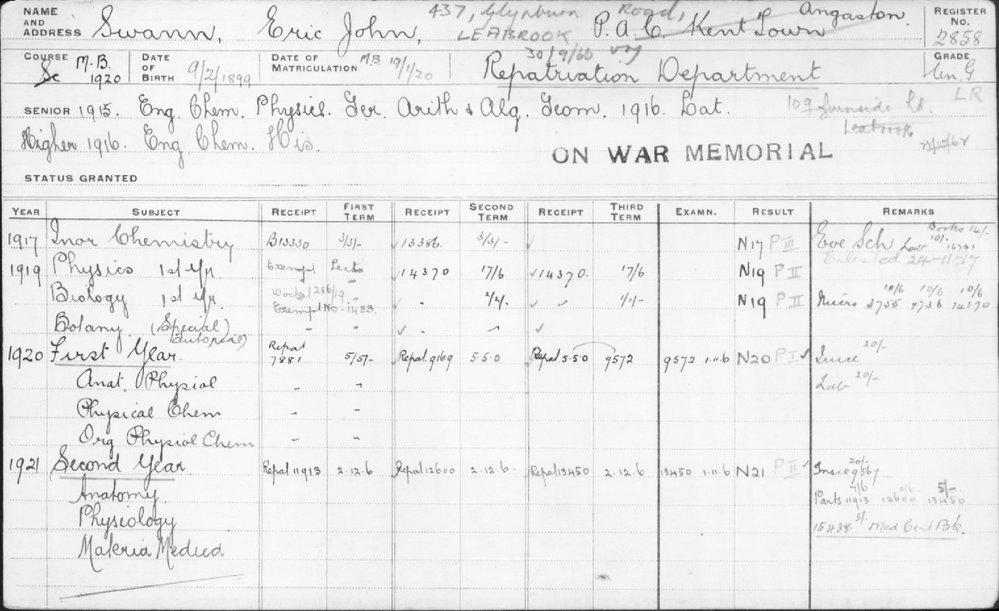 NAME AND ADDRESS Swann, Eric John, 437, Glynburn Road, LEABROOK P.A.C. Kent Town Angaston. REGISTER No. 2858
COURSE Sc M.B. 1920 DATE OF BIRTH 9/2/1899 DATE OF MATRICULATION M.B 19/1/20 30/9/60 Repatriation Department GRADE Un. G
LR
SENIOR 1915. Eng. Chem. Physics. Ger. Arith & Alg. Geom. 1916. Lat. 109 Rd.
Leabrook
Higher 1916. Eng Chem. His.
ON WAR MEMORIAL
STATUS GRANTED
YEAR SUBJECT RECEIPT FIRST TERM RECEIPT SECOND TERM RECEIPT THIRD TERM EXAMN. RESULT REMARKS
1917 Inor Chemistry B13330 3/3/- ✓13386. 3/3/- ✓ N17 P III Eve Sch Lab 10/- Books 14/-
Enlisted 24-11-17
1919 Physics 1st Yr. Exempt Lects ✓14370 17/6 ✓14370. 17/6 N19 P II
Biology 1st Yr. 286/19 ✓ " ✓ " N19 P II Micro 10/6 10/6 10/6 14370
Exempt No. 1433.
Botany (Special) " " ✓ " " ✓
1920 First Year. Repat 7881 5/5/- ✓Repat. 9169 5.5.0 ✓Repat 5.5.0 9572 9572 1.11.6 N20 P I ✓ 20/-
Anat. Physiol " " Lab 20/-
Physical Chem " "
Org Physiol Chem " "
1921 Second Year Repat 11913 2.12.6 Repat 12600 2.12.6. Repat 13450 2.12.6 13450 1.11.6 N21 P II ✓ 20/-
Anatomy. Parts 11913 12600 13450 5/-
Physiology 15438. 5/- Med Cert Bk.
Materia Medica